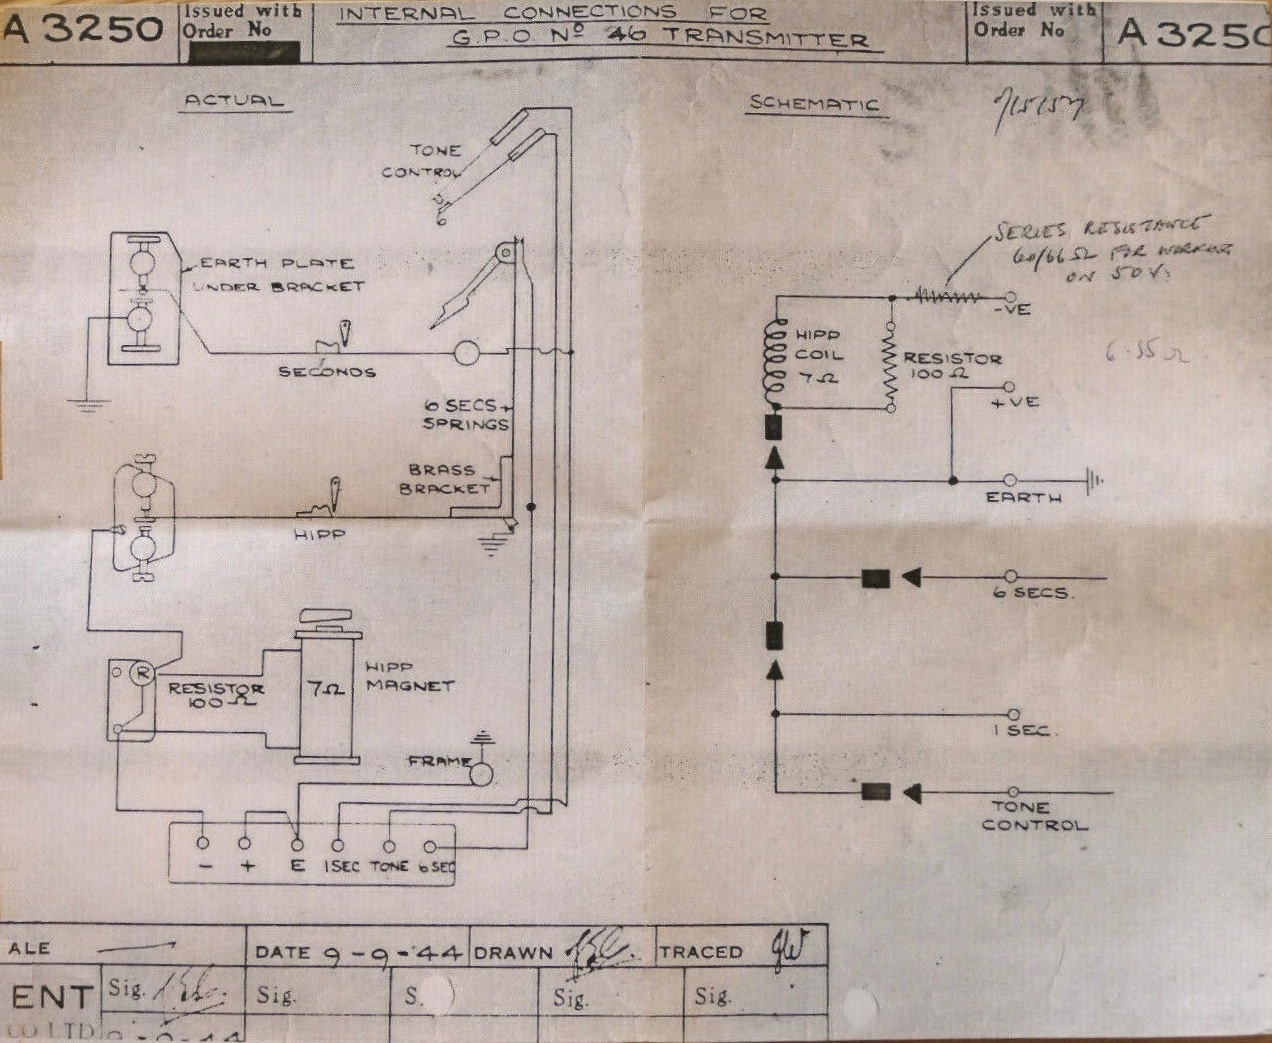 A 3250
Issued with
Order No
INTERNAL CONNECTIONS FOR
G.P.O. Nº 46 TRANSMITTER
Issued with
Order No
A 3250
ACTUAL
TONE
CONTROL
EARTH PLATE
UNDER BRACKET
SECONDS
6 SECS
SPRINGS
BRASS
BRACKET
HIPP
R
RESISTOR
100 Ω
7Ω
HIPP
MAGNET
FRAME
- + E 1SEC TONE 6 SEC
SCHEMATIC
SERIES RESISTANCE
60/66 Ω FOR WORKING
ON 50 V.
-VE
HIPP
COIL
7Ω
RESISTOR
100 Ω
6.55 Ω
+VE
EARTH
6 SECS.
1 SEC.
TONE
CONTROL
ALE
DATE 9-9-44
DRAWN
TRACED JW
ENT
CO LTD
Sig.
Sig.
S.
Sig.
Sig.